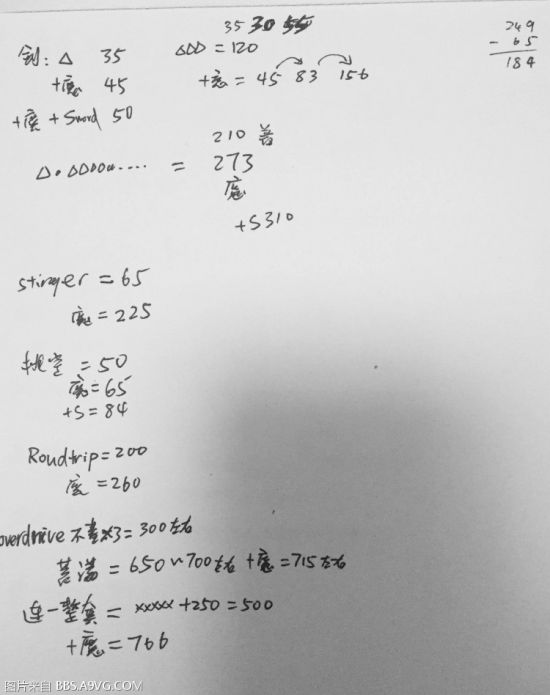 35 30 55
249
- 65
184
剑: △ 35
△△△ = 120
+魔 45
+魔 = 45 83 156
+魔 + Sword 50
210 普
= 273
魔
+S310
stinger = 65
魔 = 225
挑空 = 50
魔 = 65
+S = 84
Roudtrip = 200
魔 = 260
overdrive 不蓄×3 = 300左右
蓄满 = 650~700左右 +魔 = 715左右
连一整套 = xxxxx + 250 = 500
+魔 = 766
图片来自 BBS.A9VG.COM